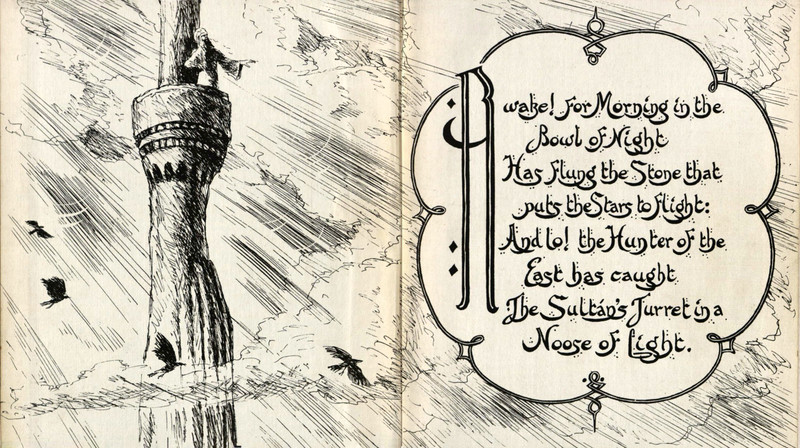 Awake! for Morning in the
Bowl of Night
Has flung the Stone that
puts the Stars to flight:
And lo! the Hunter of the
East has caught
The Sultán's Turret in a
Noose of Light.